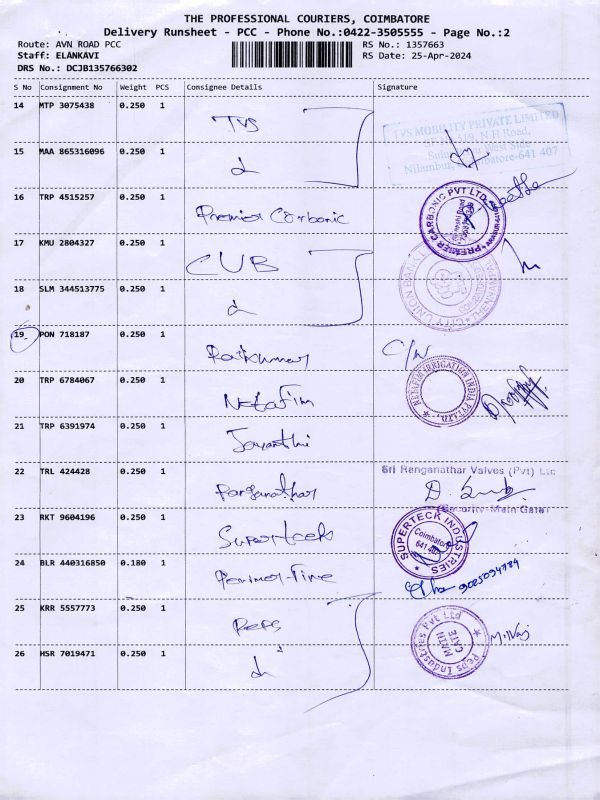 THE PROFESSIONAL COURIERS, COIMBATORE
Delivery Runsheet - PCC - Phone No.:0422-3505555 - Page No.:2
Route: AVN ROAD PCC RS No.: 1357663
Staff: ELANKAVI RS Date: 25-Apr-2024
DRS No.: DCJB135766302
S No Consignment No Weight PCS Consignee Details Signature
14 MTP 3075438 0.250 1 TVS
TVS MOBILITY PRIVATE LIMITED
N.H Road,
West Side
Nilambur, Coimbatore-641 407
15 MAA 865316096 0.250 1
16 TRP 4515257 0.250 1 Premier Carbonic
PREMIER CARBONIC PVT LTD
17 KMU 2804327 0.250 1 CUB
CITY UNION BANK
18 SLM 344513775 0.250 1
19 PON 718187 0.250 1 Rajkumar C/N
20 TRP 6784067 0.250 1 Netafim
NETAFIM IRRIGATION INDIA PVT LTD.
21 TRP 6391974 0.250 1 Jayanthi
22 TRL 424428 0.250 1 Ranganathar
Sri Renganathar Valves (Pvt) Ltd
(Security-Main Gate)
23 RKT 9604196 0.250 1 Superteck
SUPERTECK INDUSTRIES
Coimbatore
641 407
24 BLR 440316850 0.180 1
25 KRR 5557773 0.250 1 Peps
Peps Industries Pvt Ltd
MAIN GATE
26 HSR 7019471 0.250 1